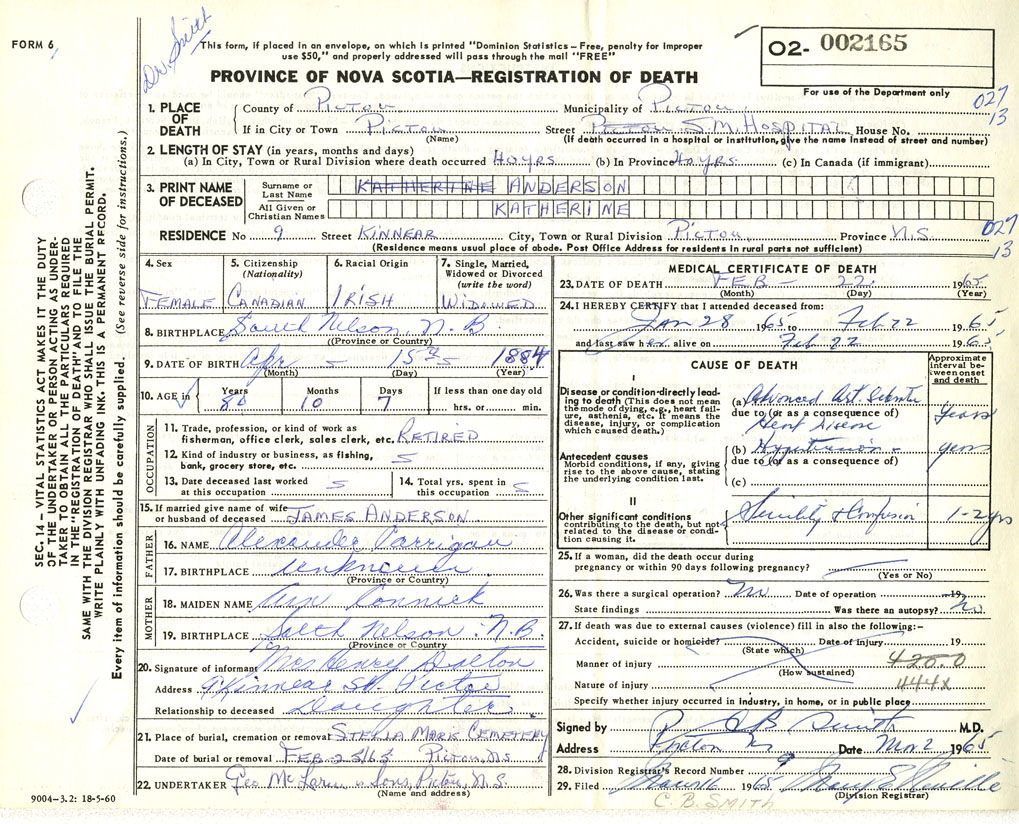 FORM 6
Dr. Smith
This form, if placed in an envelope, on which is printed "Dominion Statistics – Free, penalty for improper
use $50," and properly addressed will pass through the mail "FREE"
PROVINCE OF NOVA SCOTIA—REGISTRATION OF DEATH
O2- 002165
For use of the Department only
027
13
1. PLACE OF DEATH
County of Pictou Municipality of Pictou
If in City or Town Pictou Street Pictou S.M. Hospital House No.
(Name) (If death occurred in a hospital or institution, give the name instead of street and number)
2. LENGTH OF STAY (in years, months and days)
(a) In City, Town or Rural Division where death occurred 40 yrs (b) In Province 40 yrs. (c) In Canada (if immigrant)
3. PRINT NAME OF DECEASED
Surname or Last Name KATHERINE ANDERSON
All Given or Christian Names KATHERINE
RESIDENCE No 9 Street KINNEAR City, Town or Rural Division Pictou, Province N.S.
027
13
(Residence means usual place of abode. Post Office Address for residents in rural parts not sufficient)
4. Sex
FEMALE
5. Citizenship (Nationality)
CANADIAN
6. Racial Origin
IRISH
7. Single, Married, Widowed or Divorced (write the word)
WIDOWED
8. BIRTHPLACE South Nelson, N.B.
((Province or Country)
9. DATE OF BIRTH Apr 15th 1884
(Month) (Day) (Year)
10. AGE in
Years Months Days If less than one day old
80 10 7 hrs. or min.
OCCUPATION
11. Trade, profession, or kind of work as
fisherman, office clerk, sales clerk, etc. RETIRED
12. Kind of industry or business, as fishing,
bank, grocery store, etc.
13. Date deceased last worked
at this occupation
14. Total yrs. spent in
this occupation
15. If married give name of wife
or husband of deceased JAMES ANDERSON
FATHER
16. NAME Alexander
17. BIRTHPLACE unknown
(Province or Country)
MOTHER
18. MAIDEN NAME Ann
19. BIRTHPLACE South Nelson N.B.
(Province or Country)
20. Signature of informant Mrs Henry Dalton
Address 9 Kinnear St. Pictou
Relationship to deceased Daughter
21. Place of burial, cremation or removal STELLA MARIS CEMETERY
Date of burial or removal FEB 25/65 PICTOU, N.S.
22. UNDERTAKER Geo McLaren & Sons, Pictou, N.S.
(Name and address)
9004–3.2: 18-5-60
MEDICAL CERTIFICATE OF DEATH
23. DATE OF DEATH FEB – 22 1965
(Month) (Day) (Year)
24. I HEREBY CERTIFY that I attended deceased from:
Jan 28 1965 to Feb 22 1965
and last saw her alive on Feb 22 1965
CAUSE OF DEATH
Approximate interval between onset and death
I
Disease or condition directly leading to death (This does not mean the mode of dying, e.g., heart failure, asthenia, etc. It means the disease, injury, or complication which caused death.)
(a) Advanced Art
due to (or as a consequence of)
Heart Disease
years
Antecedent causes
Morbid conditions, if any, giving rise to the above cause, stating the underlying condition last.
(b) Hypertension
due to (or as a consequence of)
(c)
years
II
Other significant conditions
contributing to the death, but not related to the disease or condition causing it.
Senility & Confusion 1-2 yrs
25. If a woman, did the death occur during
pregnancy or within 90 days following pregnancy?
(Yes or No)
26. Was there a surgical operation? No Date of operation 19
State findings Was there an autopsy? No
27. If death was due to external causes (violence) fill in also the following:–
Accident, suicide or homicide? Date of injury 19
(State which)
Manner of injury 420.0
(How sustained)
Nature of injury 444X
Specify whether injury occurred in industry, in home, or in public place
Signed by B Smith M.D.
Address Pictou NS Date Mar 2 1965
28. Division Registrar's Record Number 9
29. Filed March 1965
(Division Registrar)
C. B. SMITH
SEC. 14 – VITAL STATISTICS ACT MAKES IT THE DUTY
OF THE UNDERTAKER OR PERSON ACTING AS UNDER-
TAKER TO OBTAIN ALL THE PARTICULARS REQUIRED
IN THE "REGISTRATION OF DEATH" AND TO FILE THE
SAME WITH THE DIVISION REGISTRAR WHO SHALL ISSUE THE BURIAL PERMIT.
WRITE PLAINLY WITH UNFADING INK. THIS IS A PERMANENT RECORD.
Every item of information should be carefully supplied. (See reverse side for instructions.)